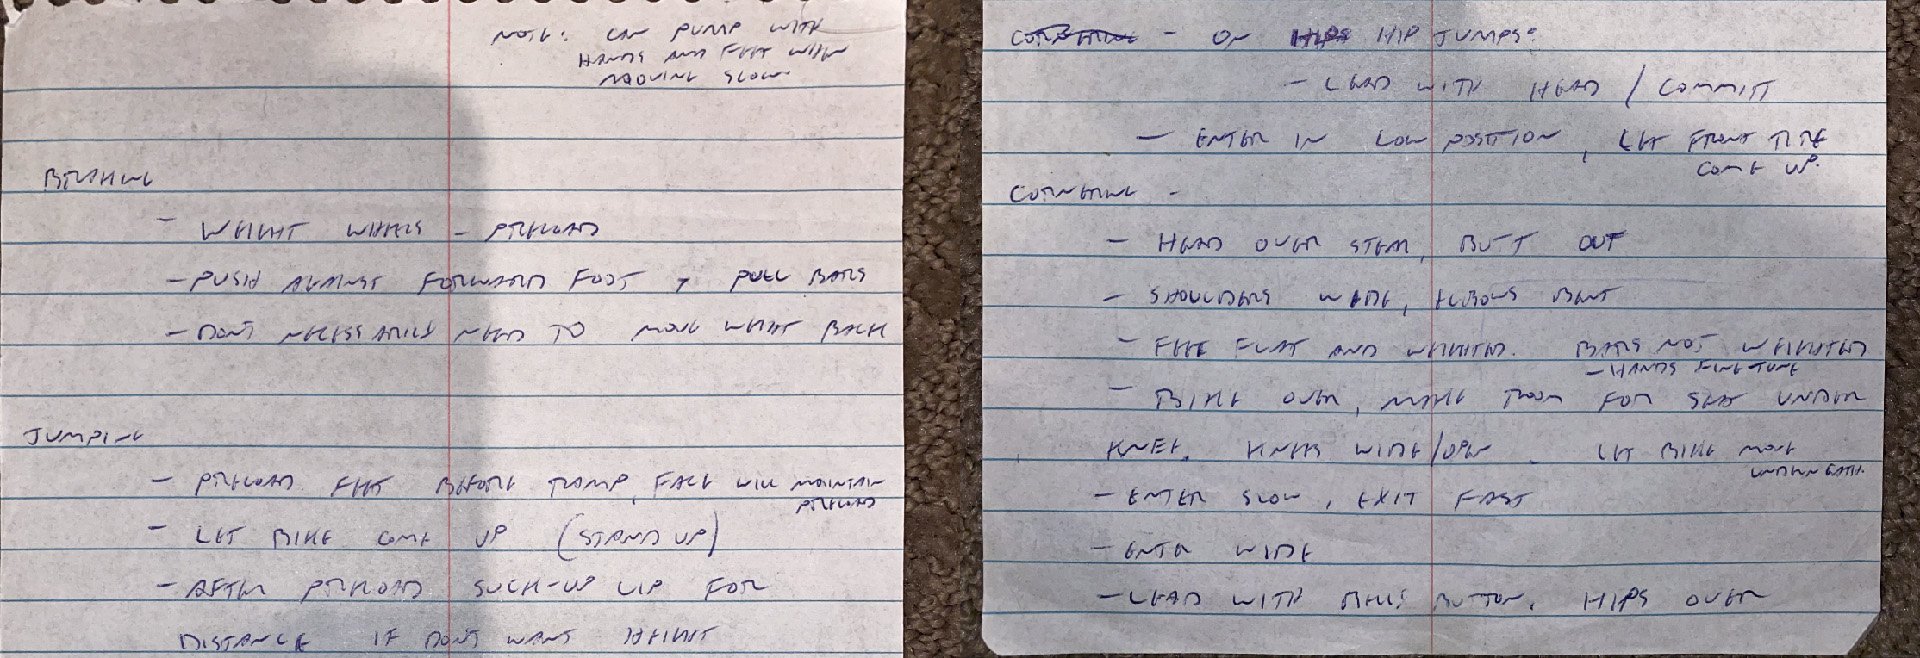 NOTE: CAN PUMP WITH
HANDS AND FEET WHEN
MOVING SLOW
BRAKING
- WEIGHT WHEELS - PRELOAD
- PUSH AGAINST FORWARD FOOT + PULL BARS
- DON'T NECESSARILY NEED TO MOVE WEIGHT BACK
JUMPING
- PRELOAD FEET BEFORE RAMP, FACE WILL MAINTAIN
PRELOAD
- LET BIKE COME UP (STAND UP)
- AFTER PRELOAD SUCK-UP LIP FOR
DISTANCE IF DON'T WANT HEIGHT
CORNERING - ON HIPS HIP JUMPS:
- LEAD WITH HEAD / COMMITT
- ENTER IN LOW POSITION, LET FRONT TIRE
COME UP.
CORNERING -
- HEAD OVER STEM, BUTT OUT
- SHOULDERS WIDE, ELBOWS BENT
- FEET FLAT AND WEIGHTED. BARS NOT WEIGHTED
- HANDS FINE-TUNE
- BIKE OVER, MAKE ROOM FOR SEAT UNDER
KNEE. KNEES WIDE/OPEN. LET BIKE MOVE
UNDERNEATH
- ENTER SLOW, EXIT FAST
- ENTER WIDE
- LEAD WITH BELLY BUTTON, HIPS OVER